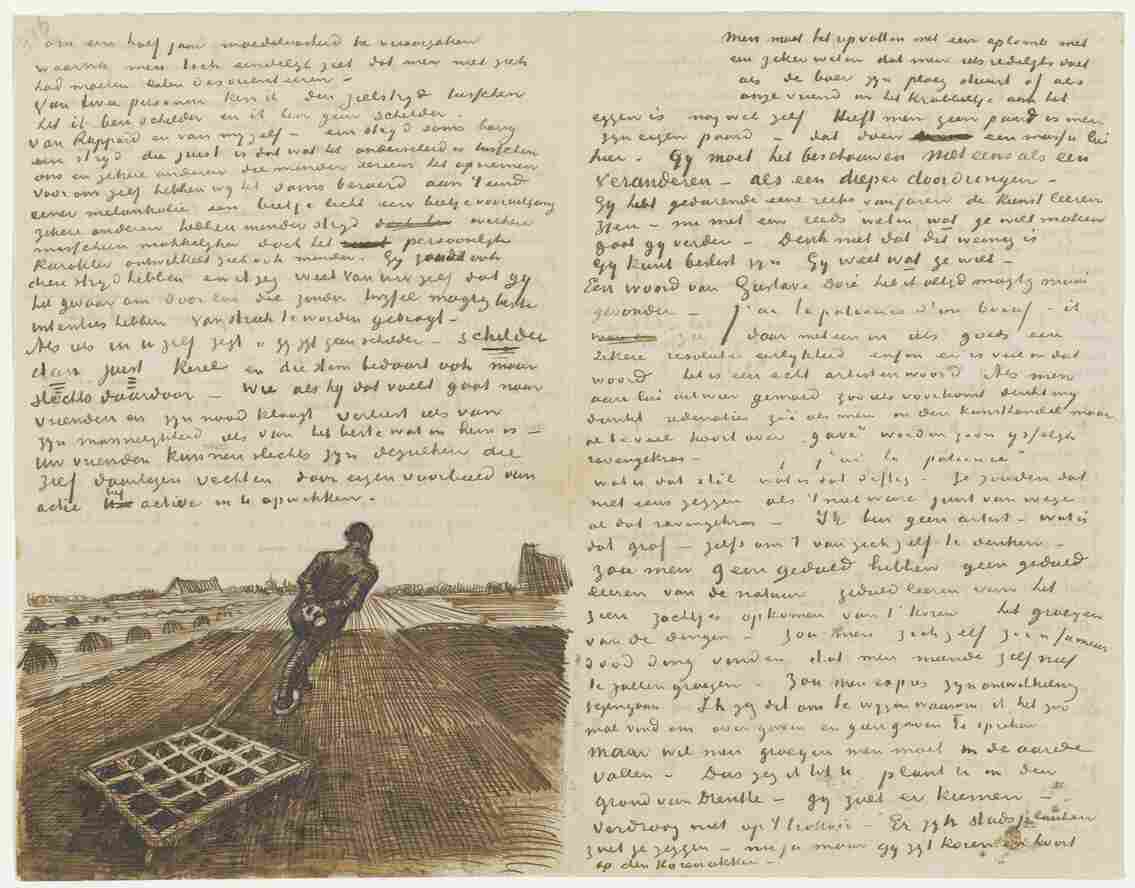 om een half jaar moedeloosheid te veroorzaken
waarna men toch eindelijk ziet dat men niet zich
had moeten laten desorienteeren –
Van twee personen ken ik den zielstrijd tusschen
het ik ben schilder en ik ben geen schilder.
Van Rappard en van mij zelf – een strijd soms bang
een strijd die juist is dat wat het onderscheid is tusschen
ons en zekere anderen die minder serieus het opnemen
voor ons zelf hebben wij het soms beroerd aan 't eind
eener melankolie een beetje licht een beetje vooruitgang
zekere anderen hebben minder strijd doch werken
misschien makkelijker doch het persoonlijk
karakter ontwikkelt zich ook minder. Gij zoudt ook
dien strijd hebben en ik zeg weet van uw zelf dat gij
het gevaar om door lui die zonder twijfel magtig beste
intenties hebben van streek te worden gebragt –
Als iets in U zelf zegt „gij zijt geen schilder – schilder
dan juist kerel en die stem bedaart ook maar
slechts daardoor – Wie als hij dat voelt gaat naar
vrienden en zijn nood klaagt verliest iets van
zijn mannelijkheid iets van het beste wat in hem is –
Uw vrienden kunnen slechts zijn dezulken die
zelf daartegen vechten door eigen voorbeeld van
actie bij actie in U opwekken.
Men moet het opvatten met een aplomb met
een zeker weten dat men iets redelijks doet
als de boer zijn ploeg stuurt of als
onze vriend in het krabbeltje aan het
eggen is nog wel zelf Heeft men geen paard is men
zijn eigen paard – dat doen een massa lui
hier. Gij moet het beschouwen niet eens als een
veranderen – als een dieper doordringen –
Gij hebt gedurende eene reeks van jaren de kunst leeren
zien – nu met een reeds weten wat ge wilt maken
gaat gij verder – Denk niet dat dit weinig is
Gij kunt beslist zijn Gij weet wat ge wilt –
Een woord van Gustave Doré heb ik altijd magtig mooi
gevonden – J'ai la patience d'un boeuf – ik
zie daar meteen in iets goeds een
zekere resolute eerlijkheid enfin er is veel in dat
woord het is een echt artistenwoord Als men
aan lui uit wier gemoed zoo iets voortkomt denkt mij
dunkt redenaties zooals men in den kunsthandel maar
al te veel hoort over „gave” worden zoon ijsselijk
ravengekras – „j'ai la patience”
wat is dat stil wat is dat deftig – Ze zouden dat
niet eens zeggen als 't niet ware juist van wege
al dat ravengekras – Ik ben geen artist – wat is
dat grof – zelfs om 't van zich zelf te denken –
zou men geen geduld hebben geen geduld
leeren van de natuur geduld leeren van het
zien zachtjes opkomen van 't koren het groeijen
van de dingen – zou men zich zelf zoo'n fameus
dood ding vinden dat men meende zelf niet
te zullen groeijen – Zou men expres zijn ontwikkeling
tegengaan Ik zeg dit om te wijzen waarom ik het zoo
mal vind om over gaven en geen gaven te spreken
Maar wil men groeijen men moet in de aarde
vallen – Dus zeg ik tot U plant U in den
grond van Drenthe – gij zult er kiemen –
Verdroog niet op 't trottoir – Er zijn stadsplanten
zult ge zeggen – nu ja maar gij zijt koren en hoort
op den korenakker –